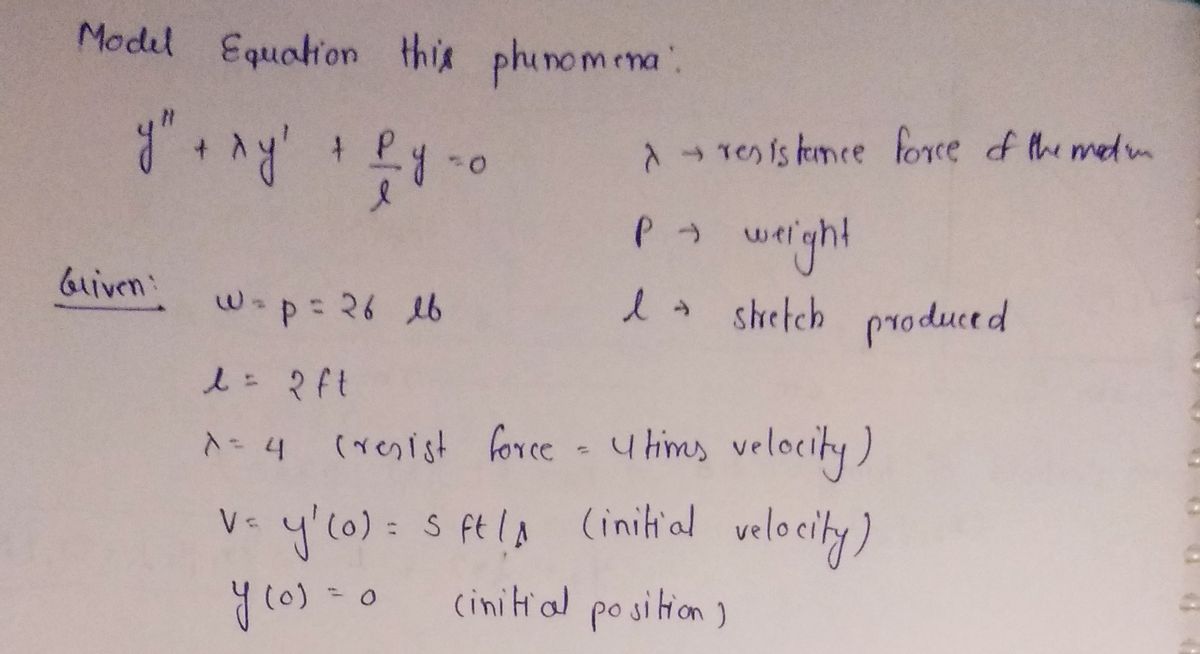 Model Equation this phenomena:
y'' + λy' + P/l y = 0
λ → resistance force of the medm
P → weight
l → stretch produced
Given: w = p = 26 lb
l = 2 ft
λ = 4 (resist force = 4 tims velocity)
V = y'(0) = 5 ft/s (initial velocity)
y(0) = 0 (initial position)